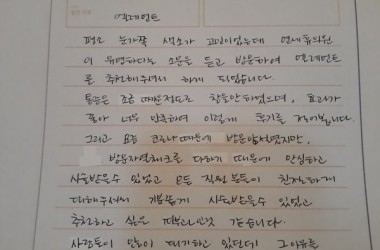 엘레먼트
평소 눈가쪽 색소가 고민이었는데 연세휴의원
이 유명하다는 소문을 듣고 방문하여 엘레먼트
를 추천해주셔서 하게 되었습니다.
통증은 조금 따끔정도로 참을만 하였으며, 효과가
좋아 너무 만족하여 이렇게 후기를 적어봅니다.
그리고 요즘 코로나 때문에 방문 망설였지만,
방문자명체크를 다하기 때문에 안심하고
시술받을수 있었고 모든 직원분들이 친절하게
대해주셔서 기분좋게 시술받을수 있었고
추천하고 싶은 피부과인것 같습니다.
사람들이 많이 대기하고 있던데 그이유를